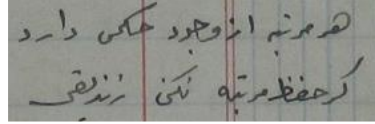 هر مرتبه از وجود حکمی دارد
گر حفظ مرتبه نکنی زندیقی